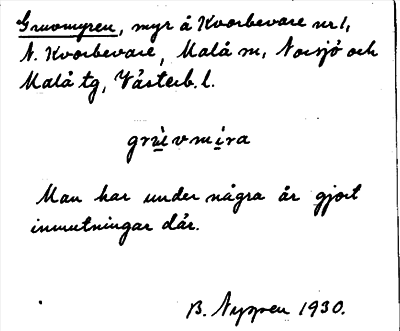 Gruvmyren, myr å Kvorbevare nr 1,
N. Kvorbevare, Malå sn, Norsjö och
Malå tg, Västerb. l.
grùvmira
Man har under några år gjort
inmutningar där.
B. Nyman 1930.